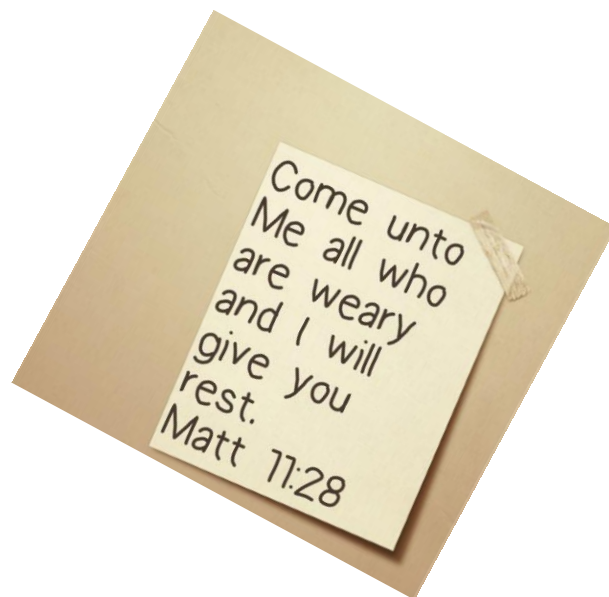 Come unto
Me all who
are weary
and I will
give you
rest.
Matt 11:28